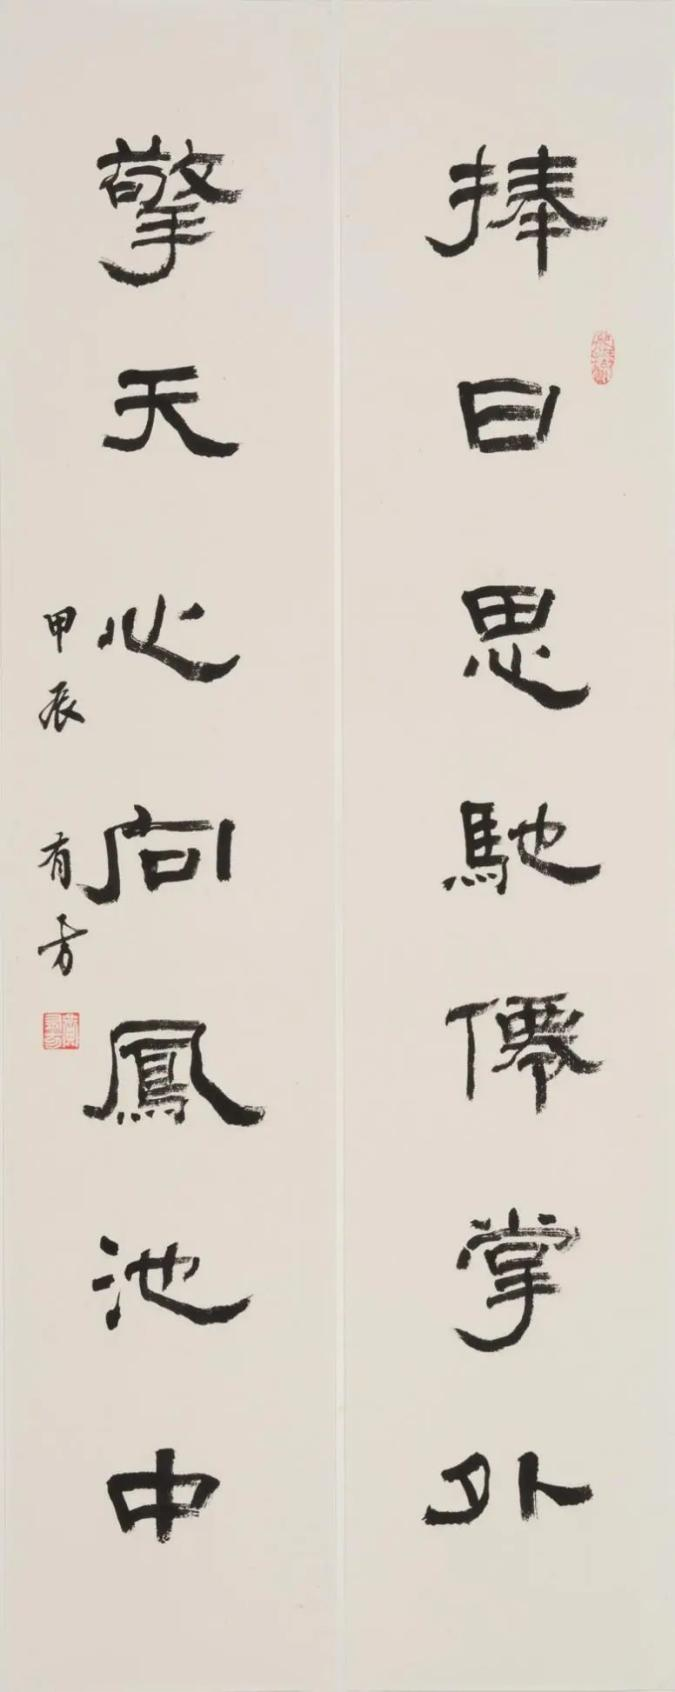 捧日思馳僊掌外
擎天心向鳳池中
甲辰 有方